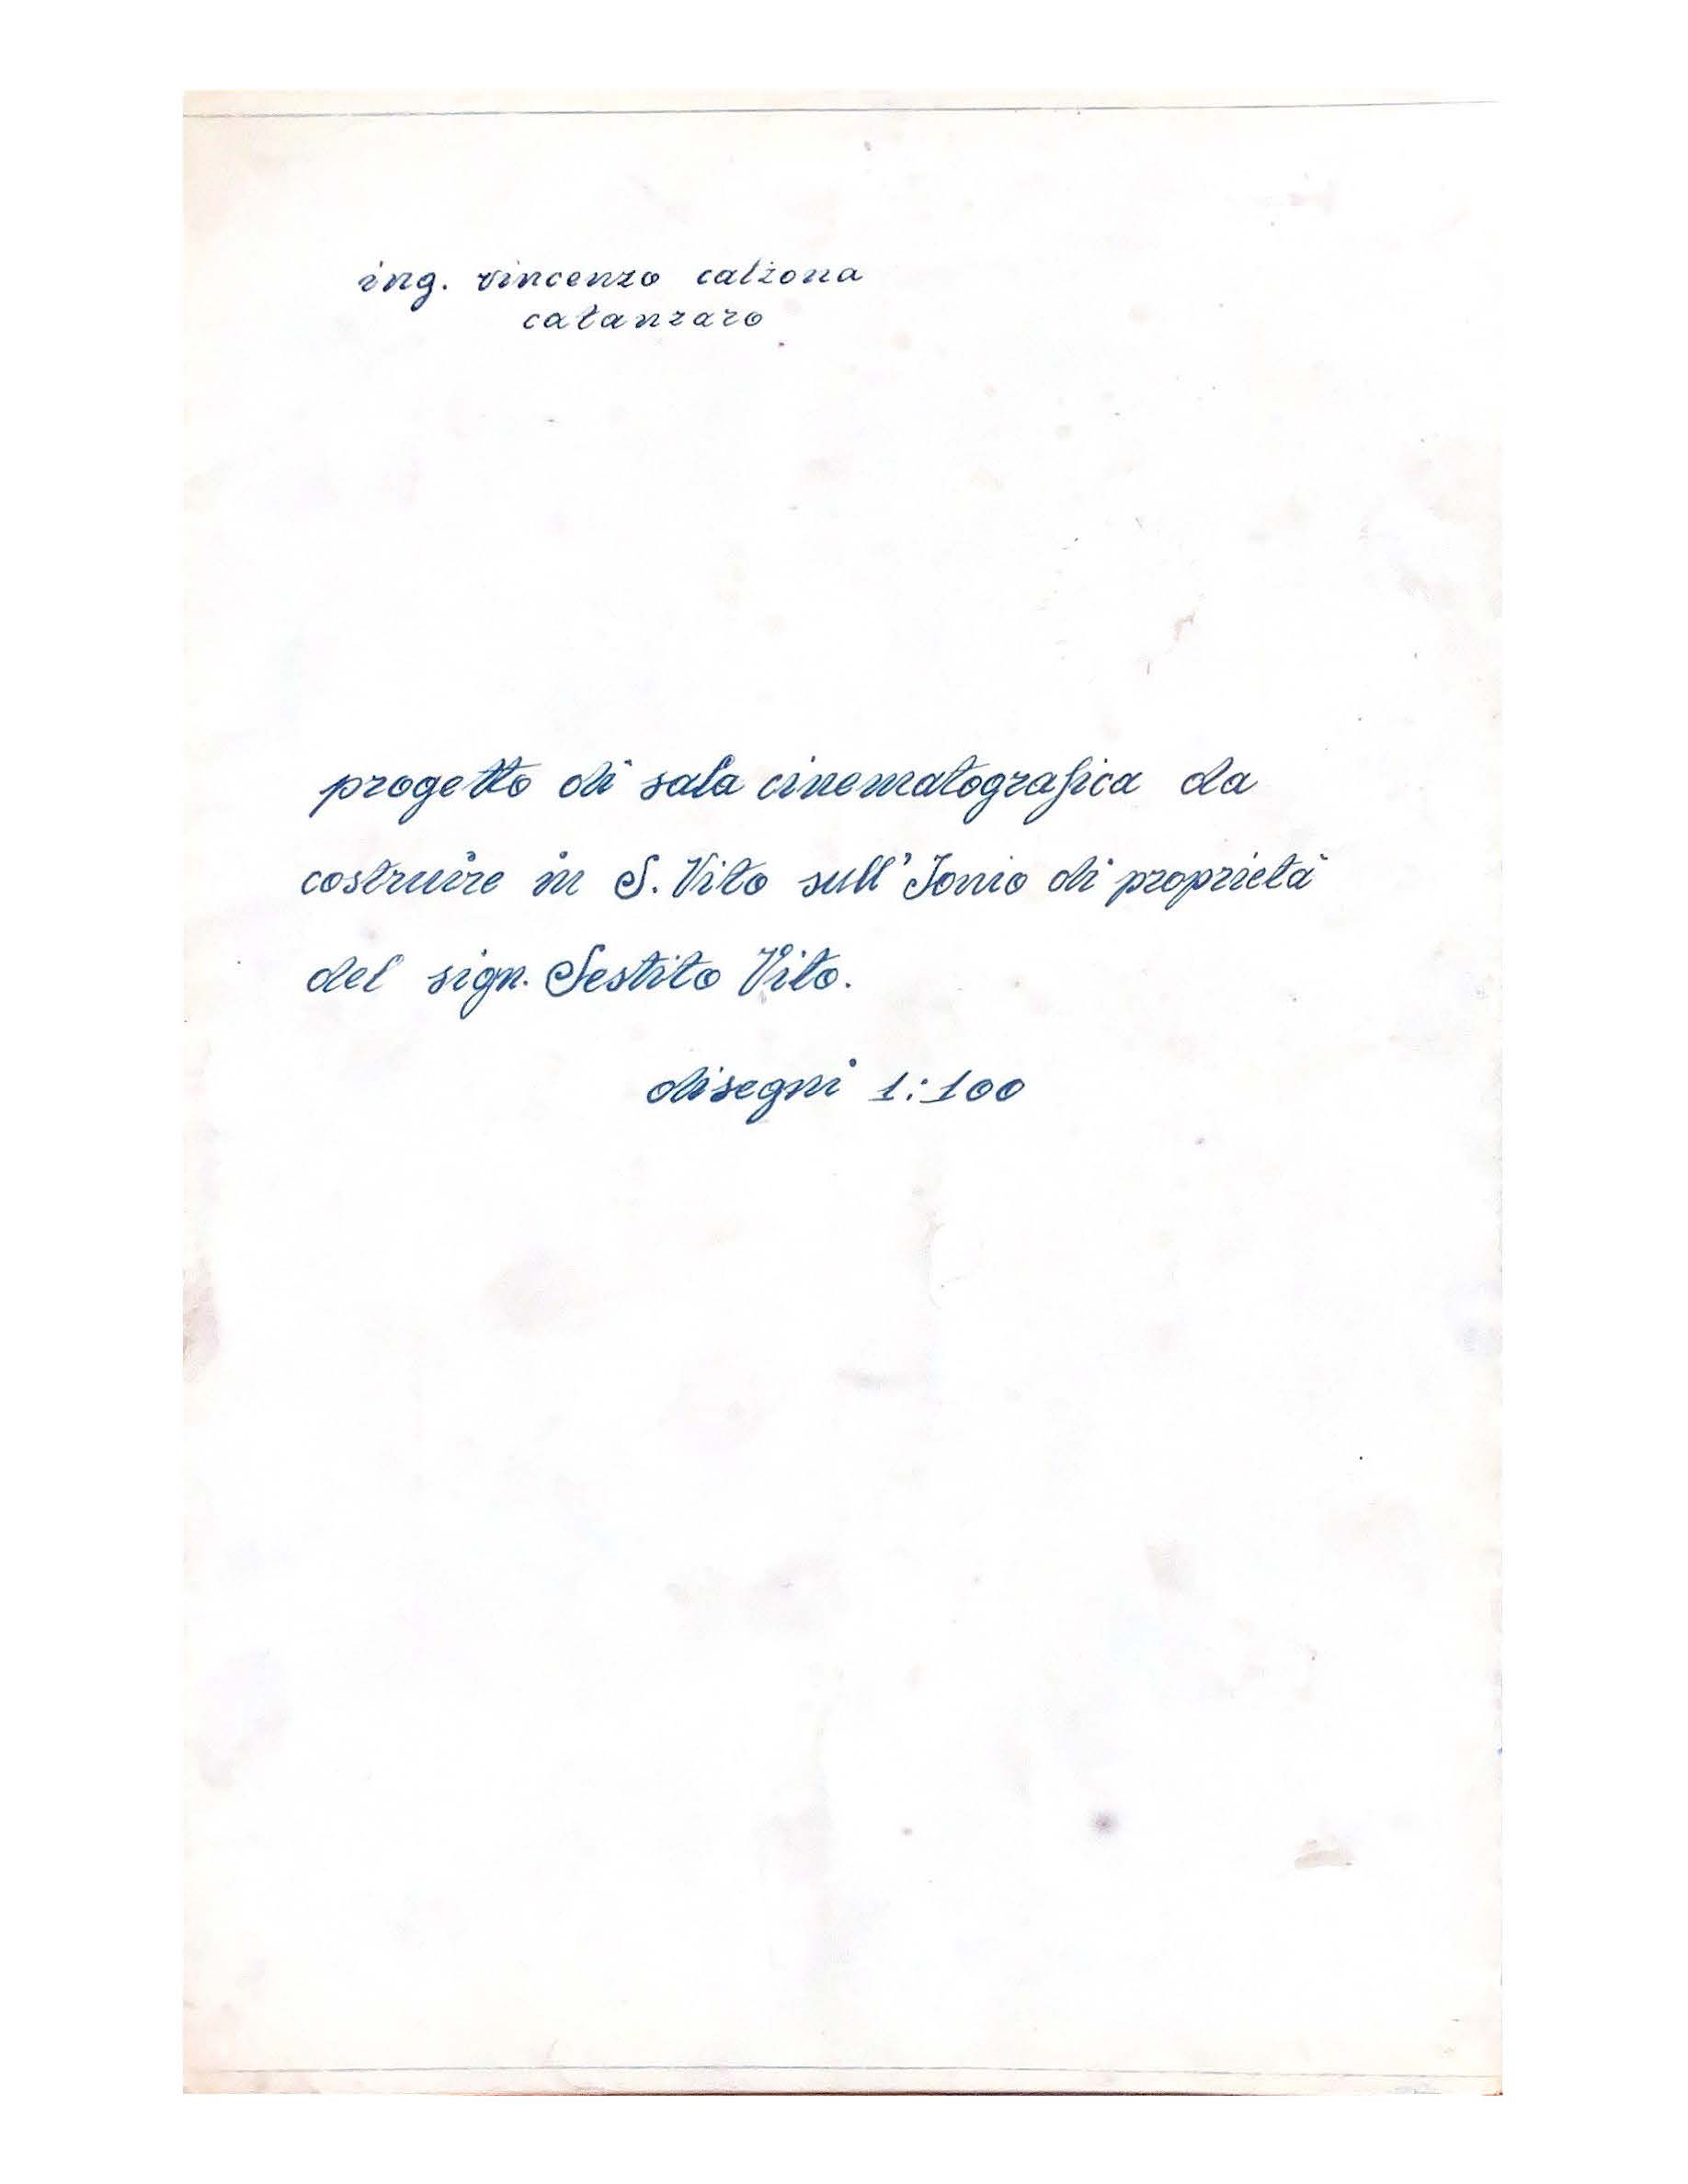 ing. vincenzo calzona
catanzaro
progetto di sala cinematografica da
costruire in S. Vito sull'Jonio di proprietà
del sign. Sestito Vito.
disegni 1:100